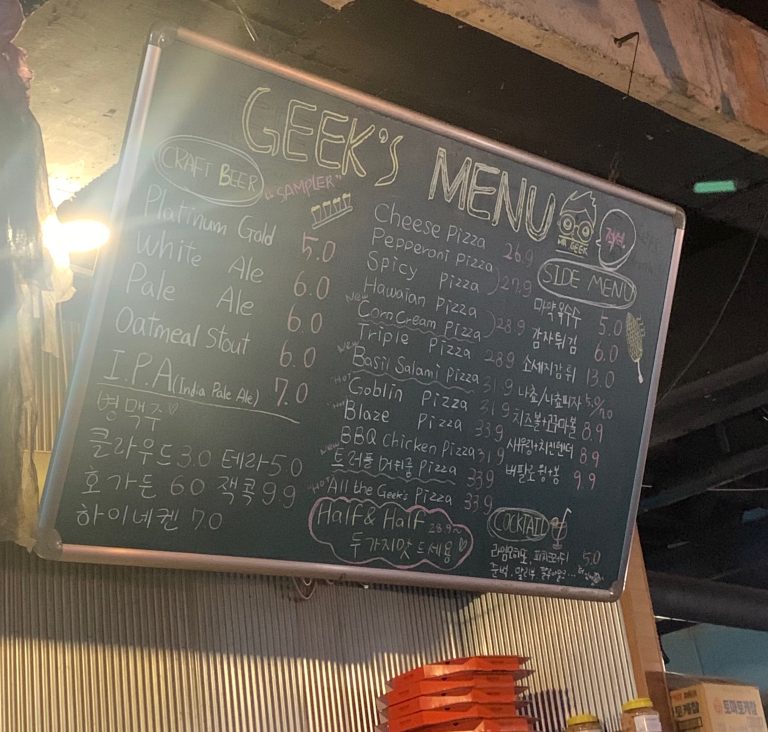 GEEK'S MENU
MR.GEEK
CRAFT BEER
"SAMPLER"
Platinum Gold 5.0
White Ale 6.0
Pale Ale 6.0
Oatmeal Stout 6.0
I.P.A (India Pale Ale) 7.0
병맥주
클라우드 3.0 테라 5.0
호가든 6.0 잭콕 9.9
하이네켄 7.0
Cheese Pizza 26.9
Pepperoni Pizza
Spicy Pizza ) 27.9
Hawaiian Pizza
New Corn Cream Pizza ) 28.9
Triple Pizza 28.9
New Basil Salami Pizza 31.9
Hot Goblin Pizza 31.9
Hot Blaze Pizza 33.9
BBQ chicken Pizza 31.9
New 트러플 머쉬룸 Pizza 33.9
Hot All the Geek's Pizza 33.9
Half & Half 28.9~
두가지맛 드세용
SIDE MENU
마약옥수수 5.0
감자튀김 6.0
소세지감튀 13.0
나쵸/나쵸피자 5.0/
치즈볼+꾸마볼 8.9
새우링+치킨텐더 8.9
버팔로 윙+봉 9.9
COCKTAIL
라임모히또, 피치크러쉬 5.0
준벅, 말리부
토마토케찹